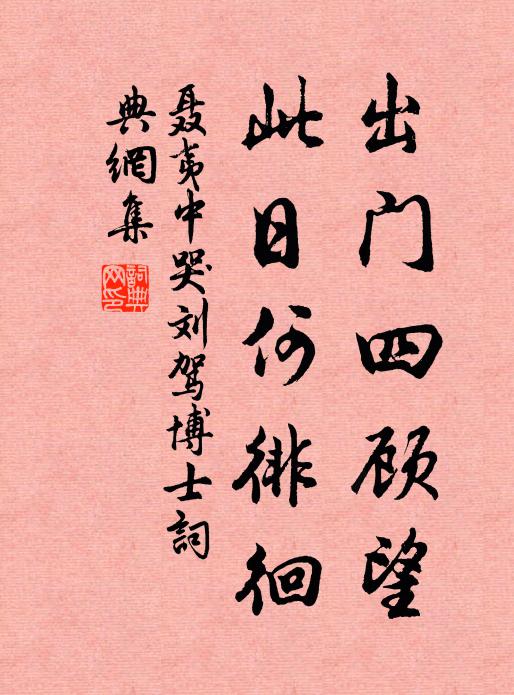 出门四顾望
此日何徘徊
聂夷中哭刘驾博士詞
典網集
詞典网印